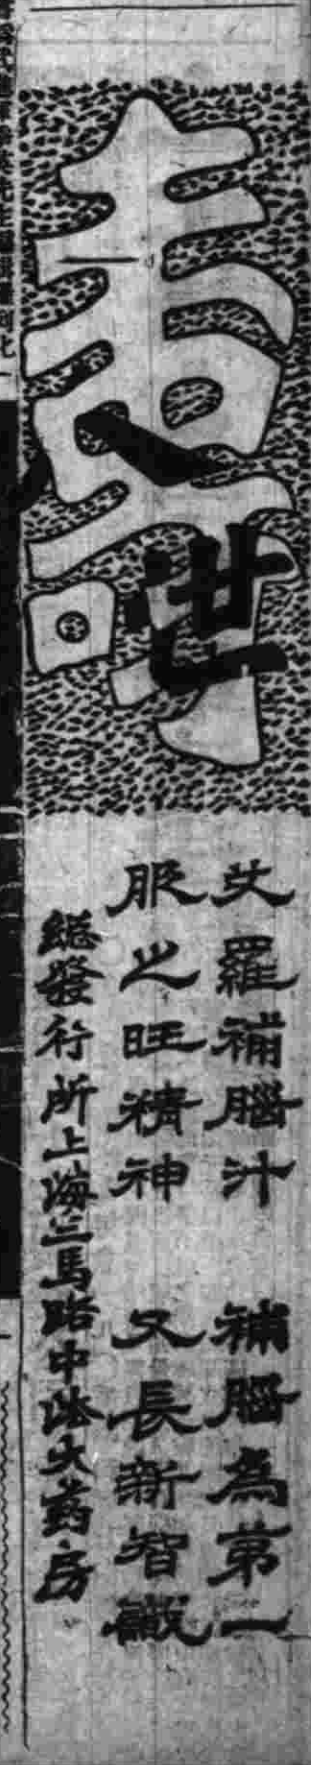 壽世
艾羅補腦汁　補腦為第一
服之旺精神　又長新智識
總發行所上海三馬路中法大药房